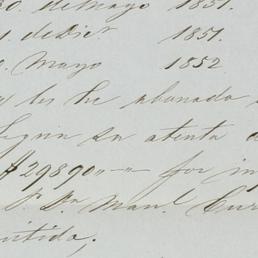 30. de Mayo 1851.
1. de Dicr. 1851.
Mayo 1852
les he abonado
Segun su atenta
$29890"-" por
Sr. Dn. Manl.